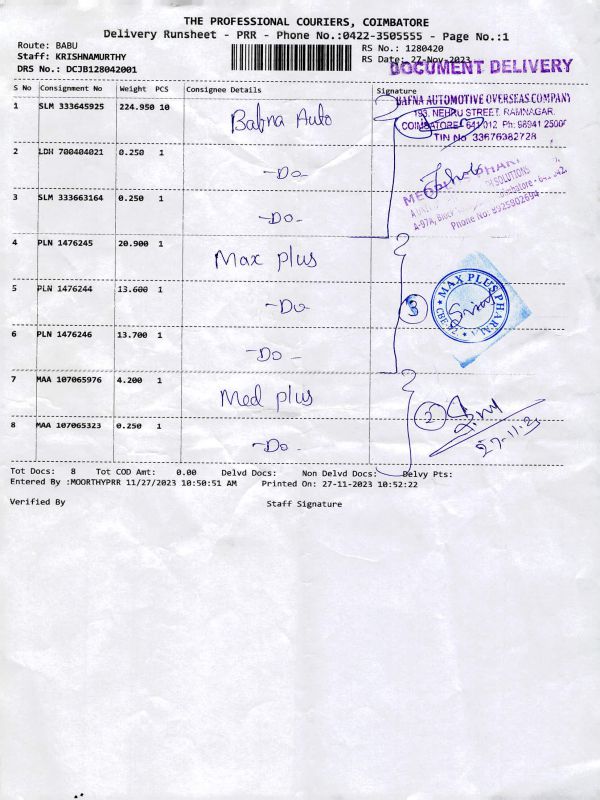 THE PROFESSIONAL COURIERS, COIMBATORE
Delivery Runsheet - PRR - Phone No.:0422-3505555 - Page No.:1
Route: BABU
RS No.: 1280420
Staff: KRISHNAMURTHY
RS Date: 27-Nov-2023
DRS No.: DCJB128042001
DOCUMENT DELIVERY
S No Consignment No Weight PCS Consignee Details Signature
1 SLM 333645925 224.950 10 Bafna Auto
BAFNA AUTOMOTIVE OVERSEAS COMPANY
193, NEHRU STREET, RAMNAGAR,
COIMBATORE - 641 012 Ph: 98941 25006
TIN No 33676382728
2 LDH 700404021 0.250 1 -Do-
3 SLM 333663164 0.250 1 -Do-
Phone No: 8925802694
4 PLN 1476245 20.900 1 Max plus
5 PLN 1476244 13.600 1 -Do-
3
MAX PLUS PHARM
6 PLN 1476246 13.700 1 -Do-
7 MAA 107065976 4.200 1 Med plus
2
8 MAA 107065323 0.250 1 -Do-
Tot Docs: 8 Tot COD Amt: 0.00 Delvd Docs: Non Delvd Docs: Delvy Pts:
Entered By :MOORTHYPRR 11/27/2023 10:50:51 AM Printed On: 27-11-2023 10:52:22
Verified By Staff Signature